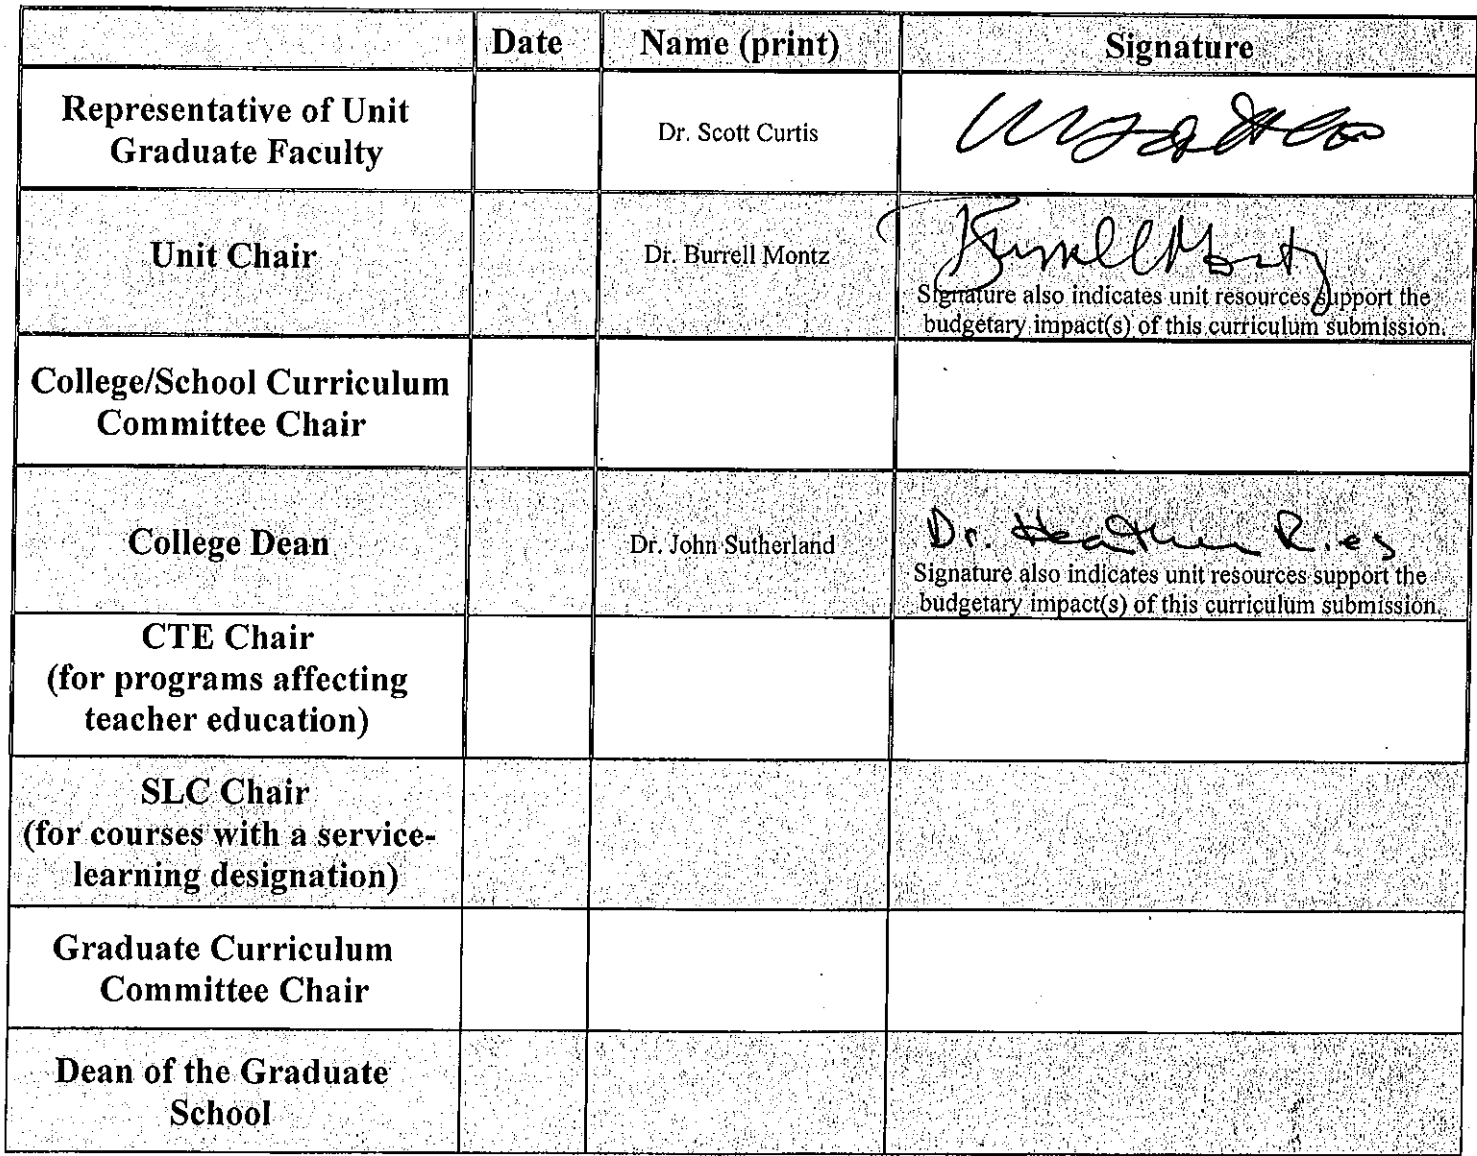 Date Name (print) Signature
Representative of Unit
Graduate Faculty
Dr. Scott Curtis
Unit Chair
Dr. Burrell Montz
Burrell Montz
Signature also indicates unit resources support the
budgetary impact(s) of this curriculum submission.
College/School Curriculum
Committee Chair
College Dean
Dr. John Sutherland
Dr. Heather Ries
Signature also indicates unit resources support the
budgetary impact(s) of this curriculum submission.
CTE Chair
(for programs affecting
teacher education)
SLC Chair
(for courses with a service-
learning designation)
Graduate Curriculum
Committee Chair
Dean of the Graduate
School